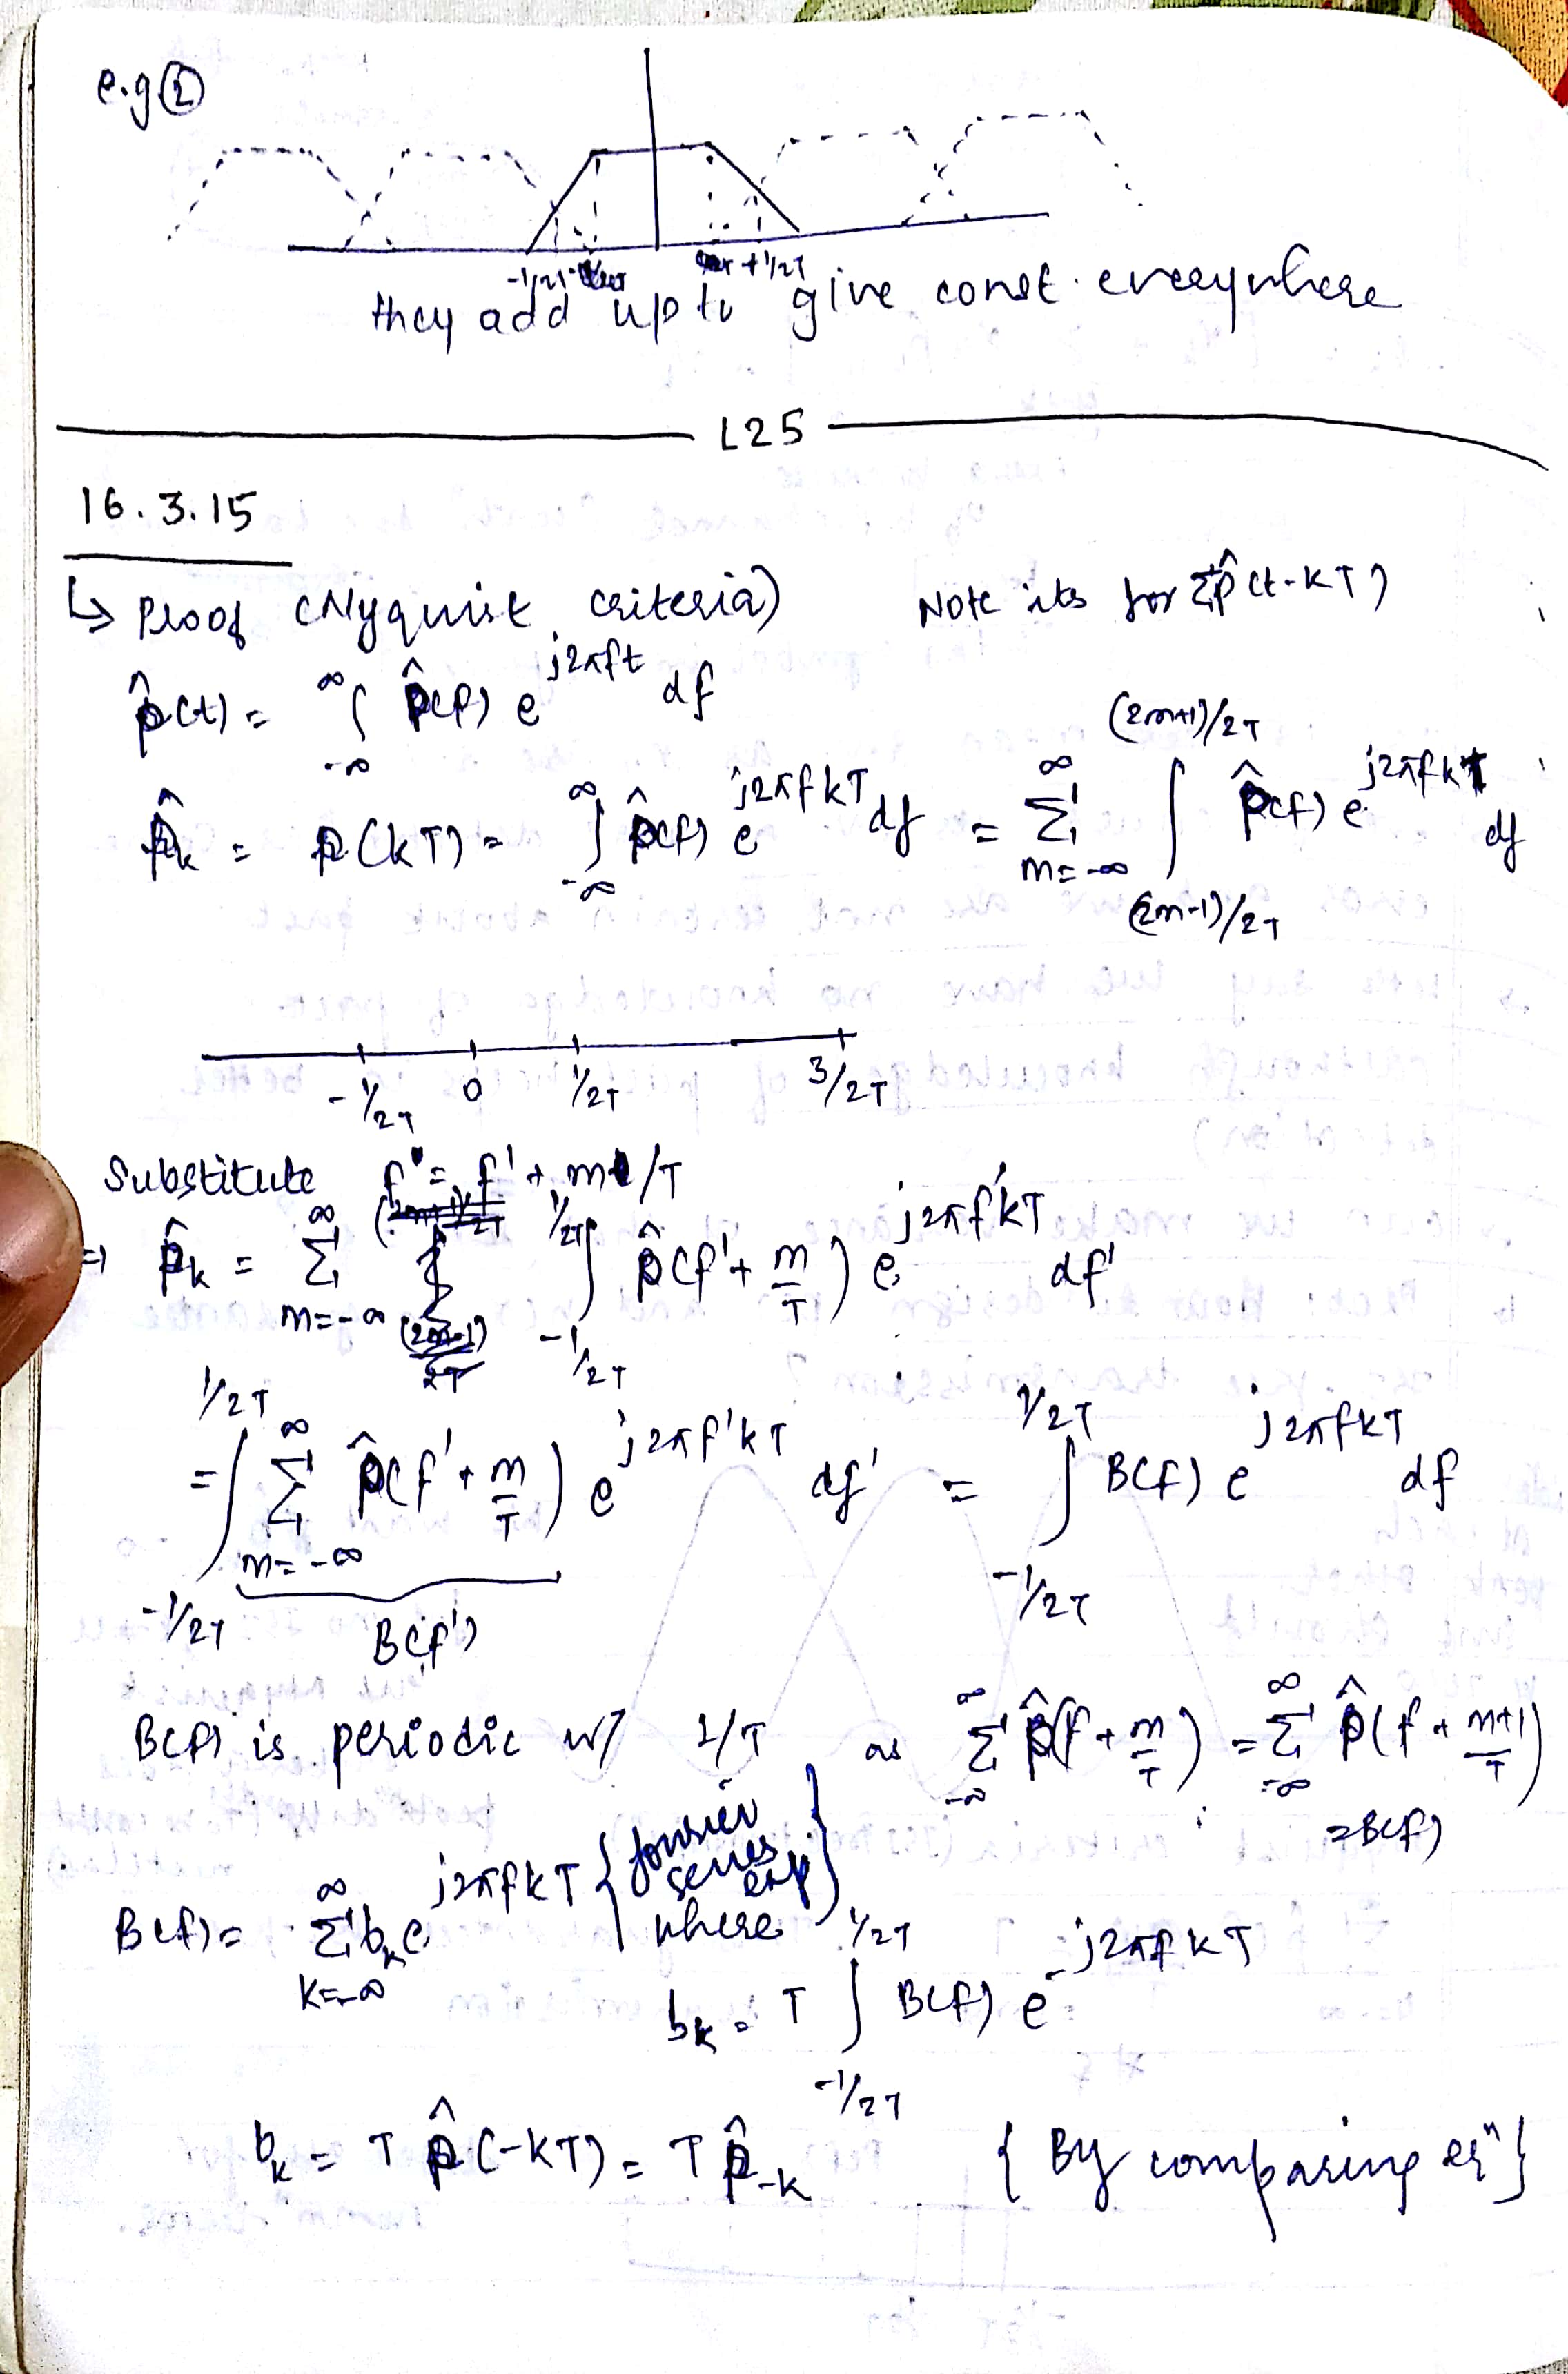 e.g ②
-1/2T +1/2T
they add up to give const. everywhere
L25
16.3.15
↳ Proof (Nyquist criteria) Note its for Σp̂(t-kT)
p̂(t) = ∫_{-∞}^{∞} p̂(f) e^{j2πft} df
p̂_k = p(kT) = ∫_{-∞}^{∞} p̂(f) e^{j2πfkT} df = Σ_{m=-∞}^{∞} ∫_{(2m-1)/2T}^{(2m+1)/2T} p̂(f) e^{j2πfkT} df
-1/2T 0 1/2T 3/2T
Substitute f = f' + m/T
⇒ p̂_k = Σ_{m=-∞}^{∞} ∫_{-1/2T}^{1/2T} p̂(f' + m/T) e^{j2πf'kT} df'
= ∫_{-1/2T}^{1/2T} Σ_{m=-∞}^{∞} p̂(f' + m/T) e^{j2πf'kT} df' = ∫_{-1/2T}^{1/2T} B(f) e^{j2πfkT} df
B(f')
B(f) is periodic w/ 1/T as Σ_{-∞}^{∞} p̂(f + m/T) = Σ_{-∞}^{∞} p̂(f + (m+1)/T)
= B(f)
B(f) = Σ_{k=-∞}^{∞} b_k e^{j2πfkT} {fourier series exp}
where
b_k = T ∫_{-1/2T}^{1/2T} B(f) e^{-j2πfkT}
b_k = T p̂(-kT) = T p̂_{-k} {By comparing eqⁿ}